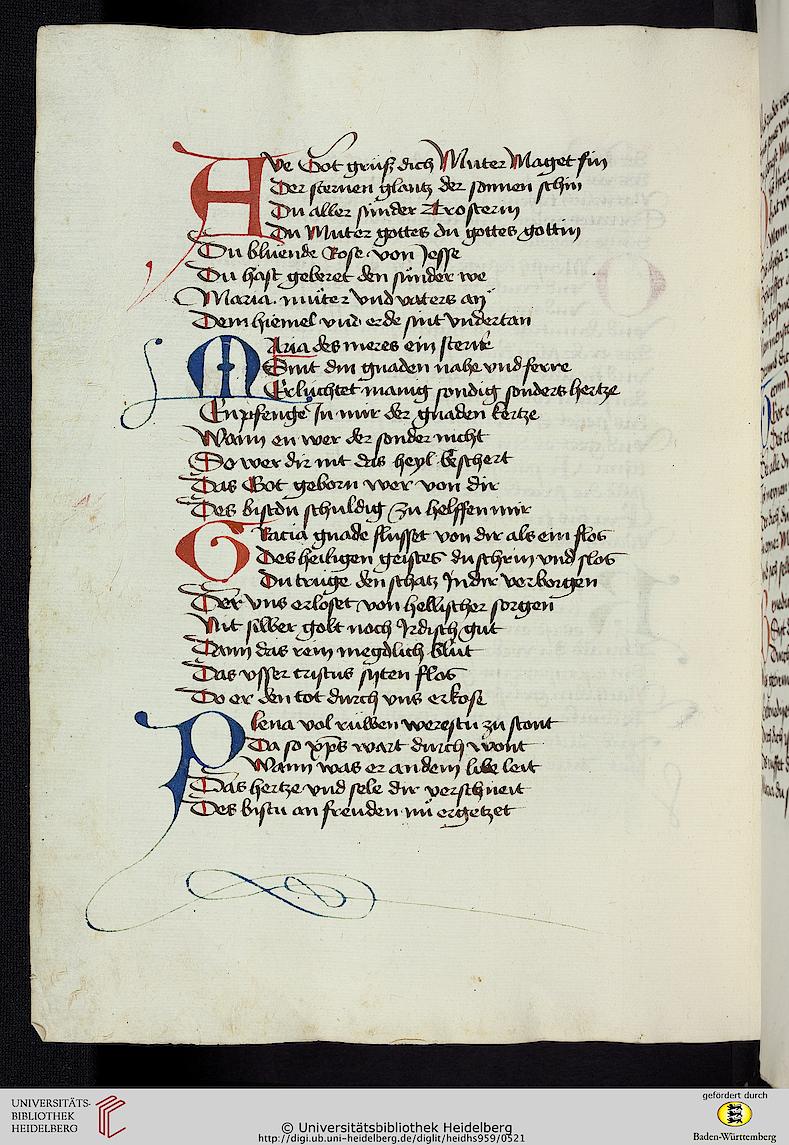 Ave Got grüß dich Müter Maget fin
Der sternen glantz der sonnen schin
Du aller sünder Trosterin
Du Müter gottes du gottes gottin
Du blüende Rose von Jesse
Du hast geberet den sünder we
Maria müter vnd vaters an
Dem hiemel vnd erde sint vndertan
Maria des meres ein sterne
Sint din gnaden nahe vnd ferre
Erlüchtet manig sondig sonders hertze
Enpfenge In mir der gnaden kertze
Wann en wer der sonder nicht
So wer dir nit das heyl beschert
Das Got geborn wer von dir
Des bistdu schuldig zu helffen mir
Gratia gnade flüsset von dir als ein flos
Des heiligen geistes du schrin vnd slos
Du trüge den schatz In dir verborgen
Der vns erloset von hellischer sorgen
Nit silber golt noch Irdisch gut
Dann das rein megdlich blüt
Das vsser cristus syten flos
Do er den tot durch vns erkose
Plena vol rüwen werestu zu stont
Da so xp̄s wart durch wont
Wann was er an dem libe leit
Das hertze vnd sele dir verschneit
Des bistu an freuden nü ergetzet
UNIVERSITÄTS-
BIBLIOTHEK
HEIDELBERG
© Universitätsbibliothek Heidelberg
http://digi.ub.uni-heidelberg.de/diglit/heidhs959/0521
gefördert durch
Baden-Württemberg